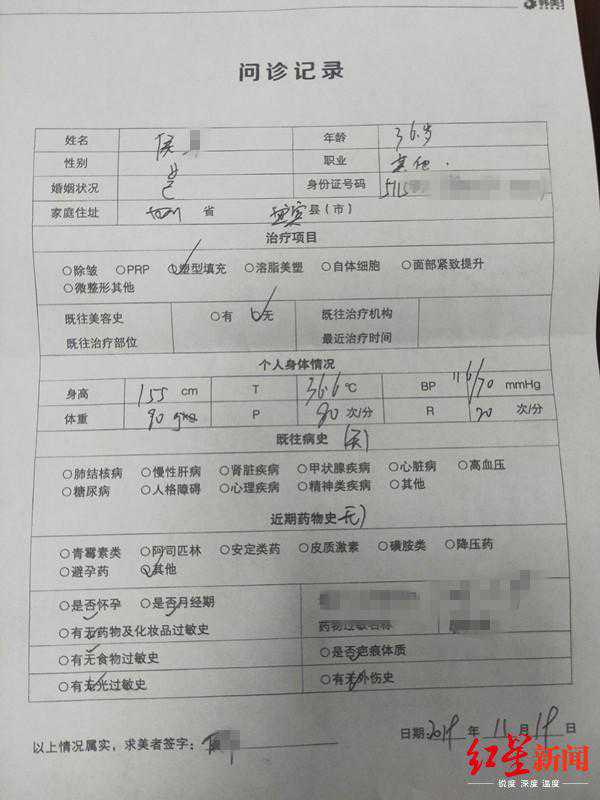 韩美
问诊记录
姓名 侯 年龄 36岁
性别 女 职业 其他.
婚姻状况 已 身份证号码 5115
家庭住址 四川 省 宜宾 县(市)
治疗项目
○除皱 ○PRP ○塑型填充 ○溶脂美塑 ○自体细胞 ○面部紧致提升
○微整形其他
既往美容史 ○有 ○无 既往治疗机构
既往治疗部位 最近治疗时间
个人身体情况
身高 155 cm T 36.6 ℃ BP 116/70 mmHg
体重 90 P 80 次/分 R 20 次/分
既往病史 (无)
○肺结核病 ○慢性肝病 ○肾脏疾病 ○甲状腺疾病 ○心脏病 ○高血压
○糖尿病 ○人格障碍 ○心理疾病 ○精神类疾病 ○其他
近期药物史 (无)
○青霉素类 ○阿司匹林 ○安定类药 ○皮质激素 ○磺胺类 ○降压药
○避孕药 ○其他
○是否怀孕 ○是否月经期
○有无药物及化妆品过敏史 药物过敏名称
○有无食物过敏史 ○是否疤痕体质
○有无光过敏史 ○有无外伤史
以上情况属实,求美者签字: 侯 日期 2019 年 11 月 19 日
红星新闻
锐度 深度 温度